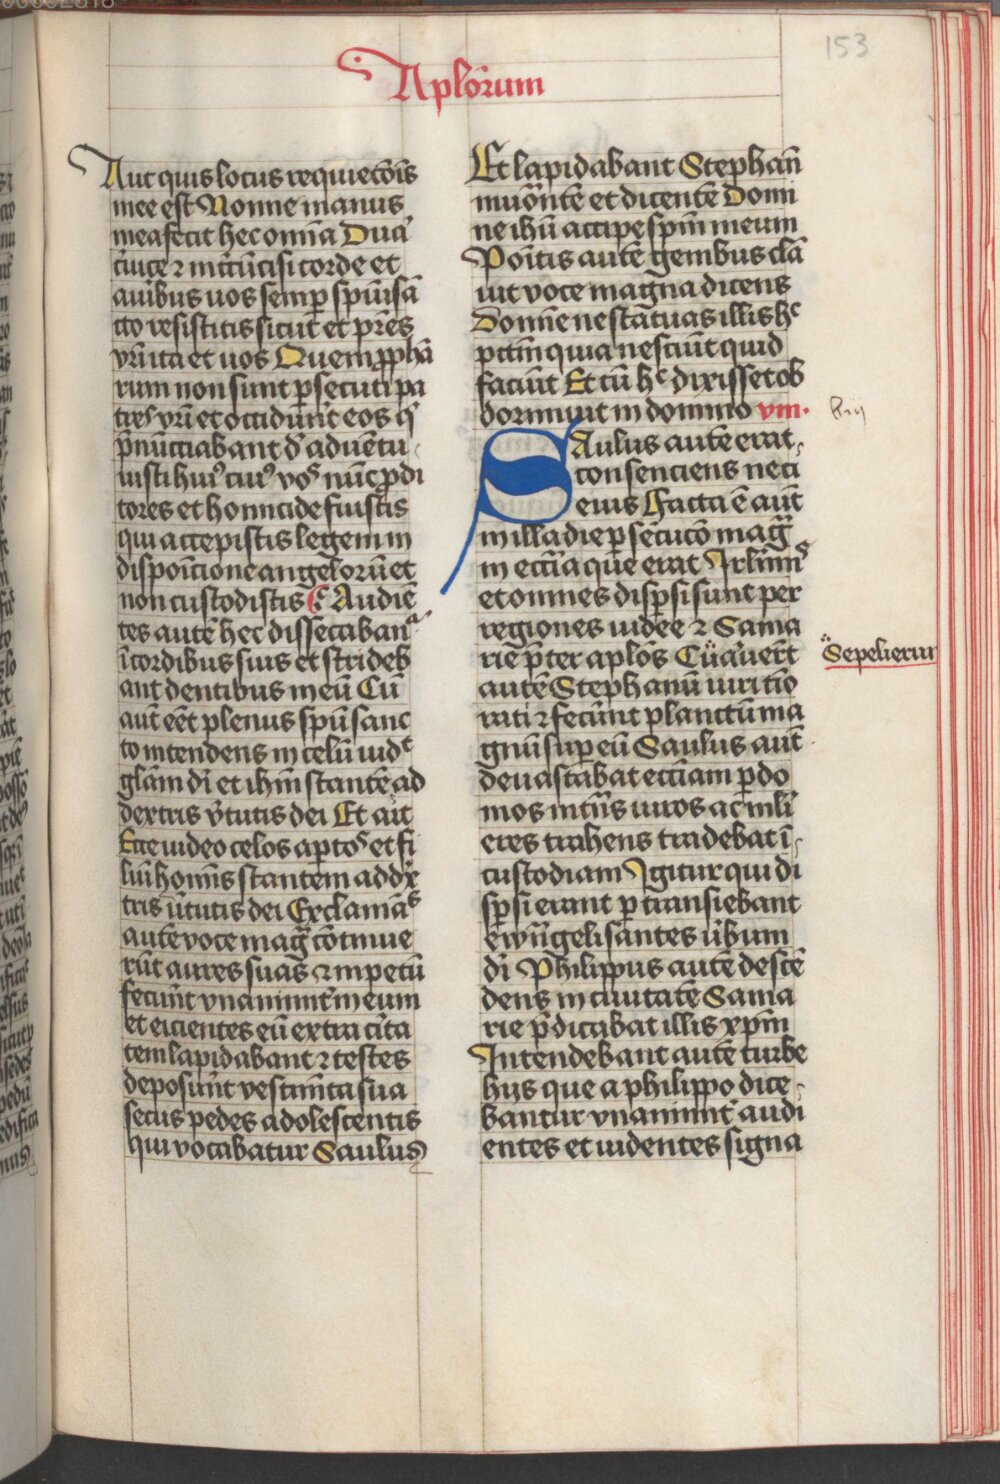 153
Aplōrum
Aut quis locus requiecōis
mee est Nonne manus
mea fecit hec om̄ia Dura
ceruice ⁊ incircūcisi corde et
auribus uos semp̲ spūisā
cto resistitis sicut et pr̄es
vr̄i ita et uos Quem ꝓphā
rum non sunt p̲secuti pa
tres vr̄i et occidunt eos qͥ
p̄nūctiabant d̄ aduētu
iusti huiꝰ cuiꝰ vos nūc ꝓdi
tores et homicide fuistis
qui accepistis legem in
dispōicione angelorū et
non custodistis Audiē
tes autē hec dissecabant
ī cordibus suis et strideb
ant dentibus in eū Cū
aūt eēt plenus spū sanc
to intendens in celū uidͭ
glām dī et ihm̄ stantē ad
dextris v̄tutis dei Et ait
Ecce uideo celos aꝑtos et fi
lium hoīnis stantem ad dex
tris v̄tutis dei Exclamātes
autē voce mag cōtinue
rūt aures suas ⁊ impetū
fecūnt vnanimit in eum
et eicientes eū extra ciūta
tem lapidabant ⁊ testes
deposūnt vestim̄ta sua
secus pedes adolescentis
qui vocabatur Saulus
Et lapidabant Stephanū
inuōntē et dicentē Domi
ne ihū accipe spm̄ meum
Pōitis autē genibus clā
uit voce magna dicens
Domīe ne statuas illis hͨ
pctm̄ quia nesciūt quid
faciūt Et cū hͨ dixisset ob
dormiuit in domino viii·
8iij
Saulus autē erat
consenciens neci
eius Facta ē aūt
in illa die ꝑsecutō mag
in ecclīa que erat Irlīmis
et omnes disꝑsi sunt per
regiones iudee ⁊ Sama
rie p̄ter aplōs Cūauer̄t
Sepelierun
autē Stephanū uiri tīo
rati ⁊ fecūnt planctū ma
gnū suꝑ eū Saulus aūt
deuastabat ecclīam ꝑ do
mos intrās viros ac muli
eres trahens tradebat ī
custodiam Igitur qui di
sꝑsi erant ꝑtransiebant
ewāgelisantes ūbum
dī Philippus autē descē
dens in ciuitatē Sama
rie p̄dicabat illis xpm̄
Intendebant autē turbe
hijs que a philippo dice
bantur vnanimit audi
entes et uidentes signa